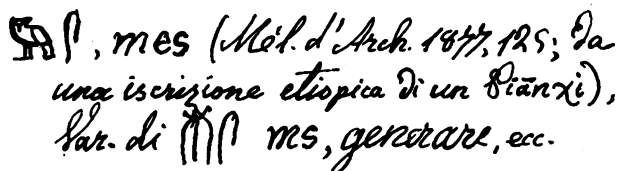 𓅓𓋴, mes (Mél. d'Arch. 1877, 125; da
una iscrizione etiopica di un Piānχi),
Var. di 𓄟𓋴 ms, generare, ecc.